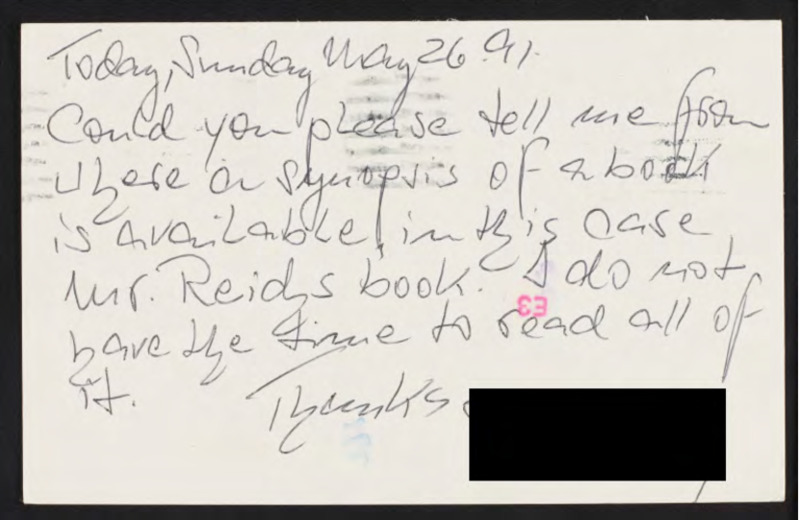 Today, Sunday May 26. 91.
Could you please tell me from
where a synopsis of a book
is available, in this case
Mr. Reich's book. I do not
have the time to read all of
it. Thanks
E3